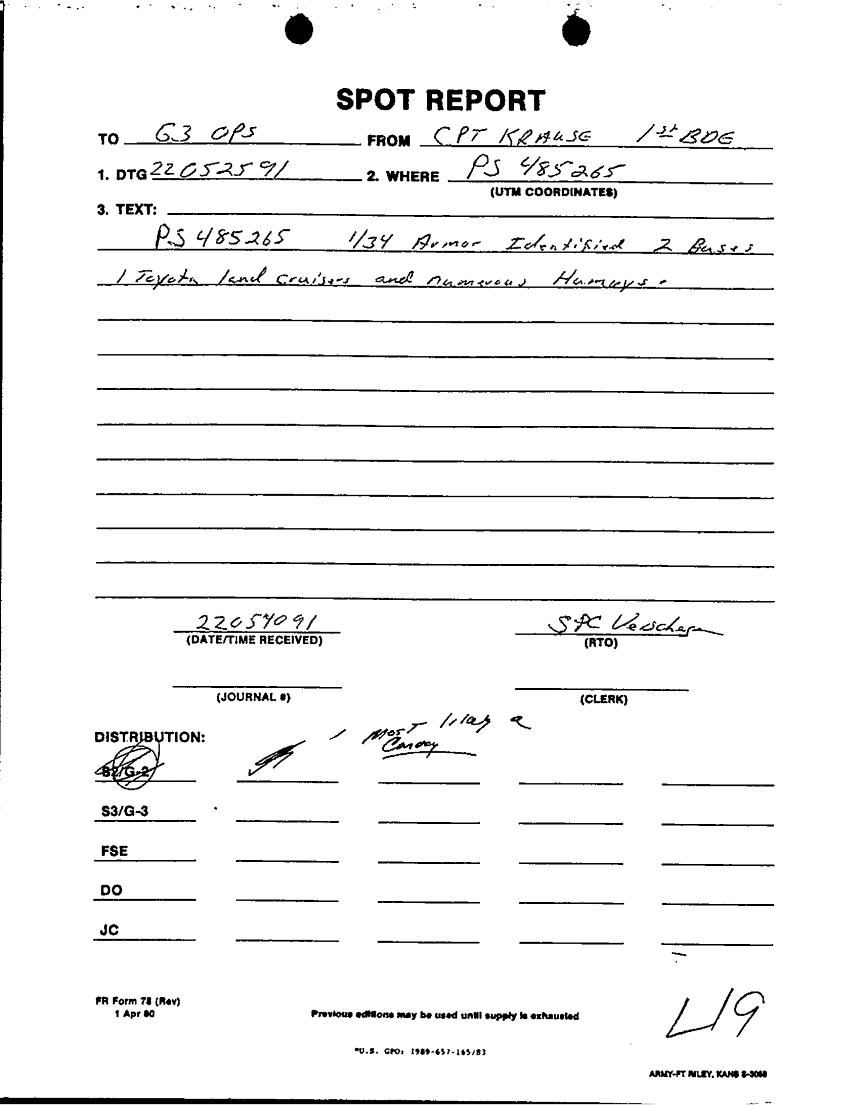 SPOT REPORT
TO G3 OPS FROM CPT KRAUSE 1st BDE
1. DTG 22052591 2. WHERE PS 485265
(UTM COORDINATES)
3. TEXT:
PS 485265 1/34 Armor Identified 2 Buses
1 Toyota land cruisers and numerous Humvys.
22054091 SPC
(DATE/TIME RECEIVED) (RTO)
(JOURNAL #) (CLERK)
DISTRIBUTION: MOST a
Convoy
S2/G-2
S3/G-3
FSE
DO
JC
FR Form 78 (Rev)
1 Apr 80 Previous editions may be used until supply is exhausted
*U.S. GPO: 1989-657-165/83
ARMY-FT RILEY, KANS